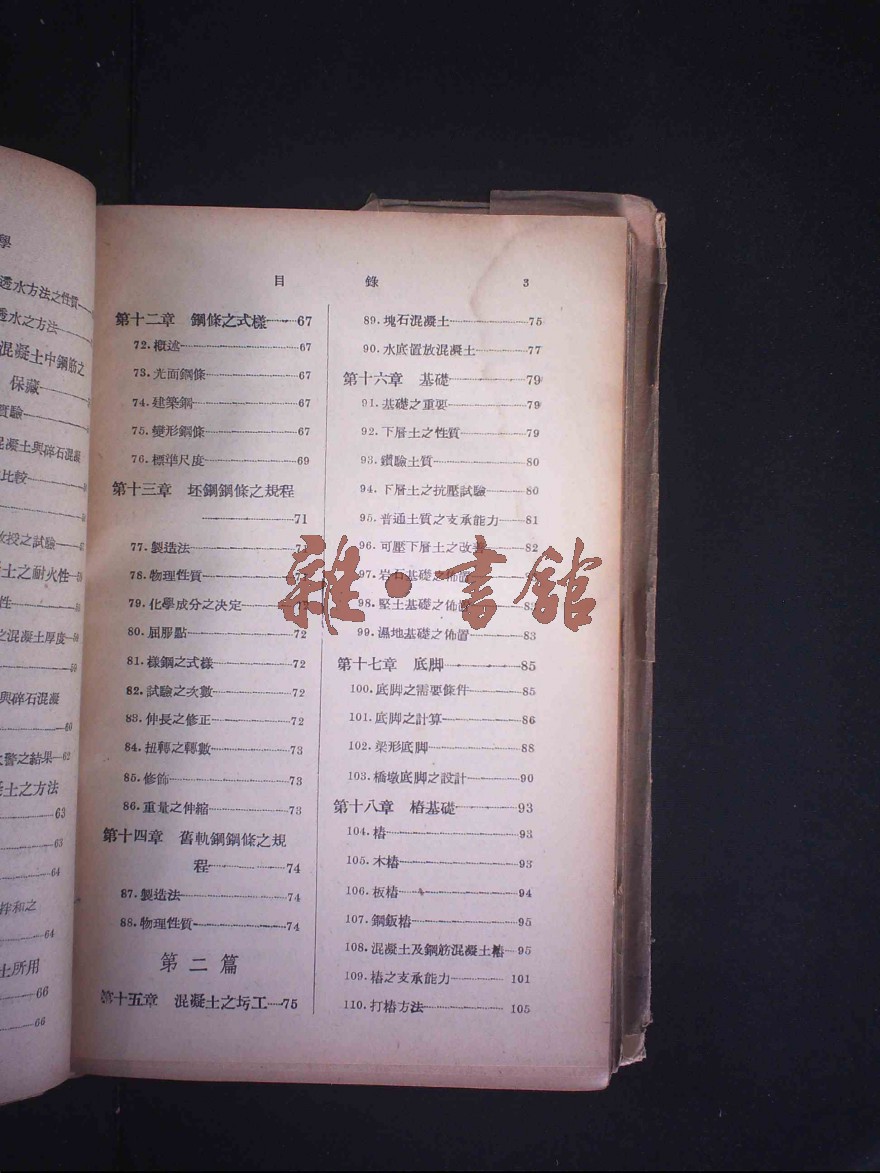 學
透水方法之性質
透水之方法
混凝土中鋼筋之
保藏
實驗
混凝土與碎石混凝
比較
教授之試驗
土之耐火性
性
之混凝土厚度
與碎石混凝
60
之結果 62
土之方法
63
63
64
拌和之
64
土所用
66
66
目 錄 3
第十二章 鋼條之式樣 67
72. 概述 67
73. 光面鋼條 67
74. 建築鋼 67
75. 變形鋼條 67
76. 標準尺度 69
第十三章 坯鋼鋼條之規程
71
77. 製造法
78. 物理性質
79. 化學成分之決定
80. 屈膠點 72
81. 樣鋼之式樣 72
82. 試驗之次數 72
83. 伸長之修正 72
84. 扭轉之轉數 73
85. 修飾 73
86. 重量之伸縮 73
第十四章 舊軌鋼鋼條之規
程 74
87. 製造法 74
88. 物理性質 74
第二篇
第十五章 混凝土之圬工 75
89. 塊石混凝土 75
90. 水底置放混凝土 77
第十六章 基礎 79
91. 基礎之重要 79
92. 下層土之性質 79
93. 鑽驗土質 80
94. 下層土之抗壓試驗 80
95. 普通土質之支承能力 81
96. 可壓下層土之改善 82
97. 岩石基礎之佈置
98. 堅土基礎之佈置 83
99. 濕地基礎之佈置 83
第十七章 底脚 85
100. 底脚之需要條件 85
101. 底脚之計算 86
102. 梁形底脚 88
103. 橋墩底脚之設計 90
第十八章 樁基礎 93
104. 樁 93
105. 木樁 93
106. 板樁 94
107. 鋼鈑樁 95
108. 混凝土及鋼筋混凝土樁 95
109. 樁之支承能力 101
110. 打樁方法 105
雜·書館